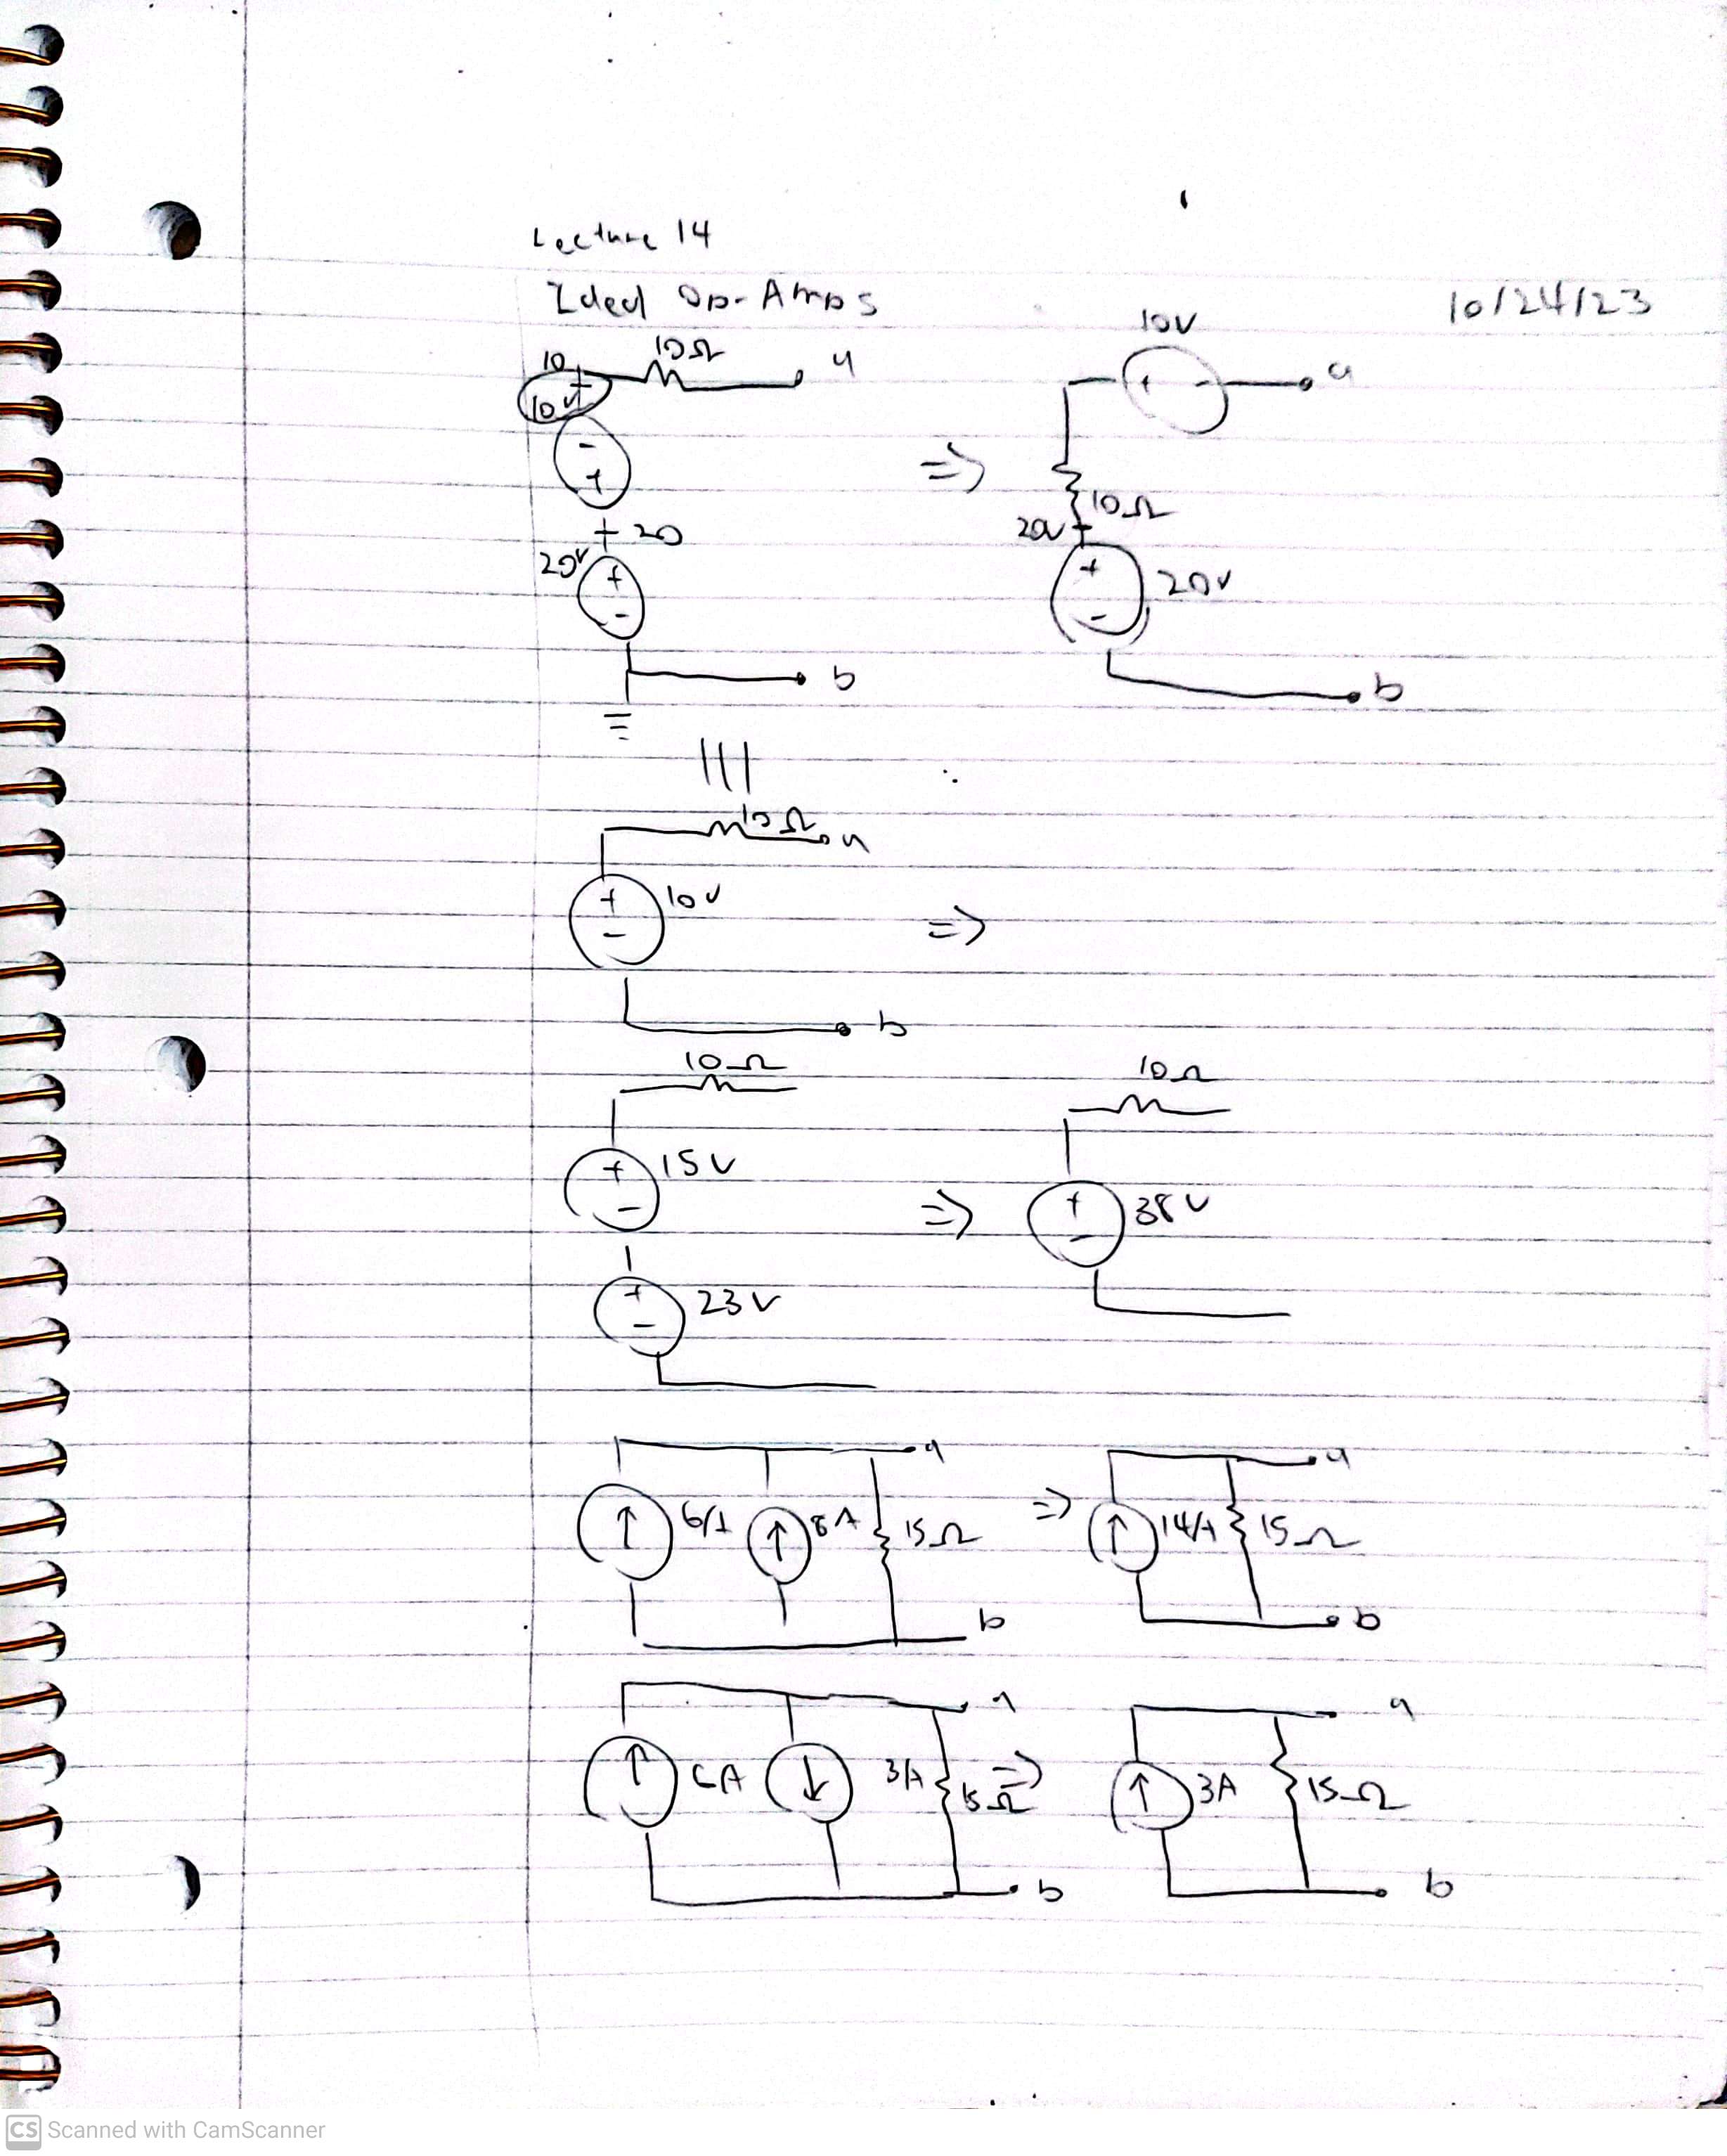 Lecture 14
Ideal Op-Amps
10/24/23
10 10Ω a
10V
- +
+ 20
20V + -
b
⇒
10V
+ - a
10Ω
20V +
+ - 20V
b
|||
10Ω a
+ - 10V ⇒
b
10Ω
+ - 15V
+ - 23V
⇒
10Ω
+ - 38V
a
↑ 6A ↑ 8A 15Ω
b
⇒
a
↑ 14A 15Ω
b
a
↑ 6A ↓ 3A 15Ω
b
⇒
a
↑ 3A 15Ω
b
CS Scanned with CamScanner